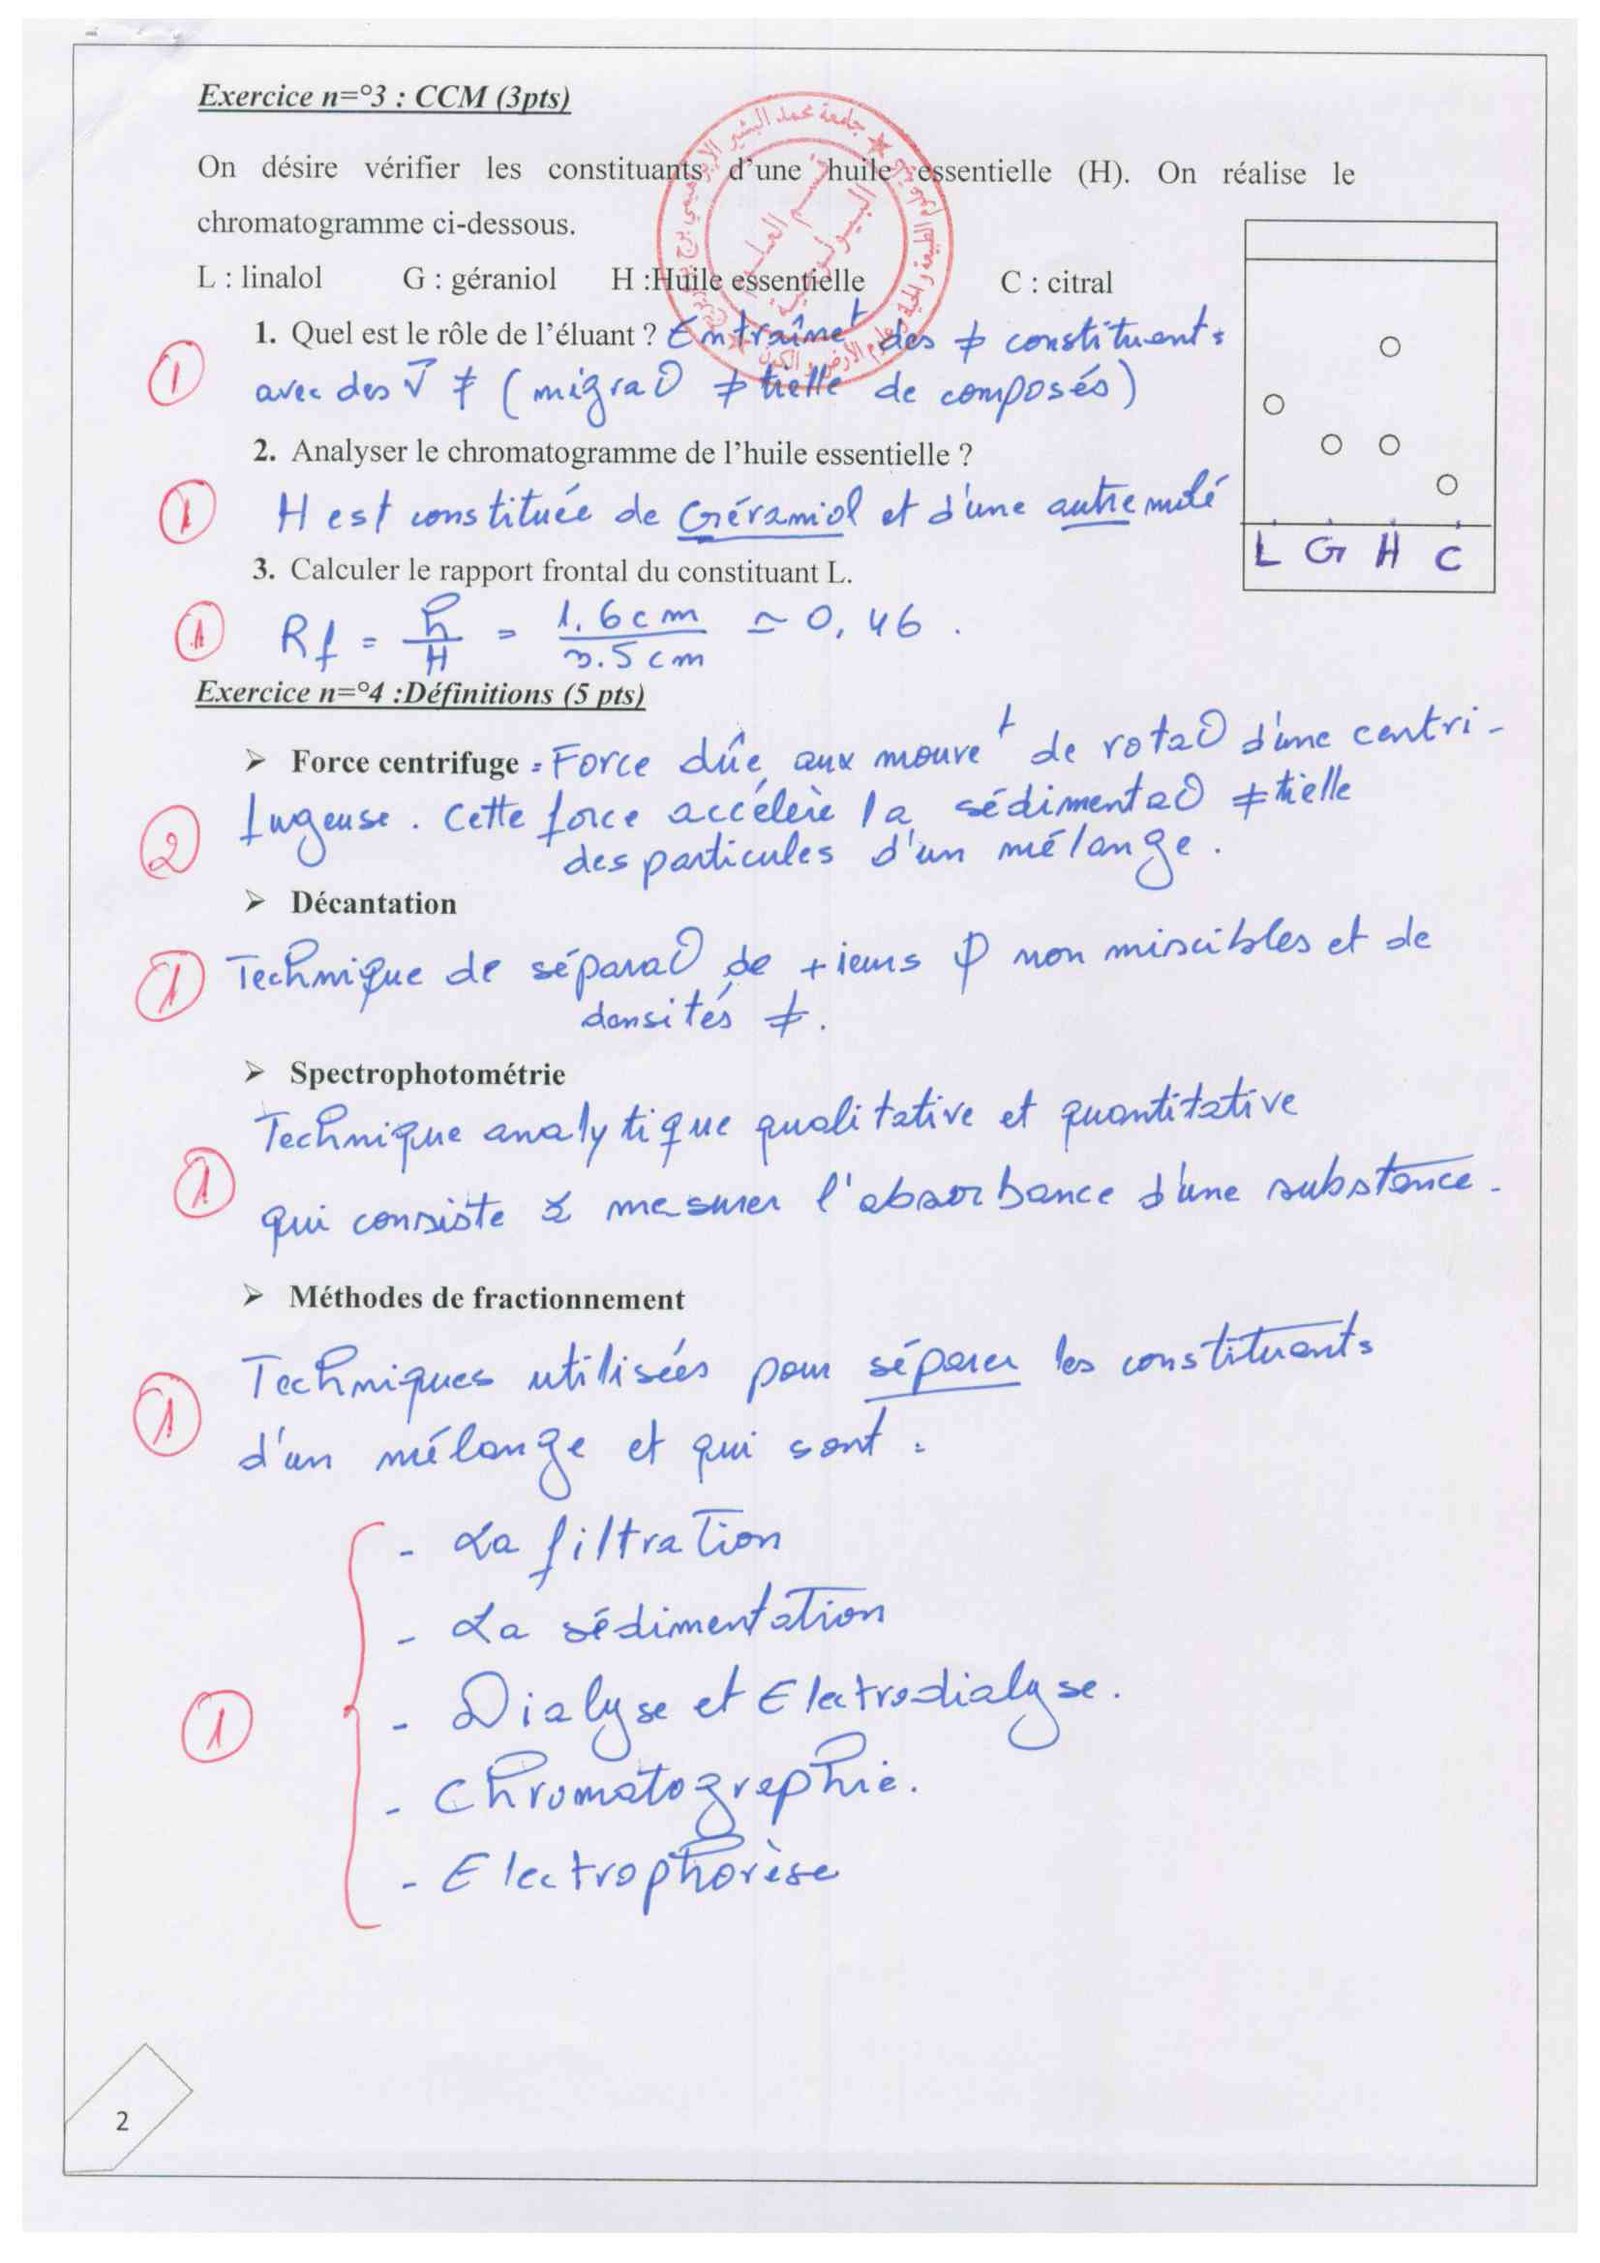 Exercice n=°3 : CCM (3pts)
On désire vérifier les constituants d'une huile essentielle (H). On réalise le
chromatogramme ci-dessous.
L : linalol G : géraniol H :Huile essentielle C : citral
1. Quel est le rôle de l'éluant ? Entraînet des ≠ constituants
① avec des V ≠ (migra° ≠tielle de composés)
2. Analyser le chromatogramme de l'huile essentielle ?
① H est constituée de Géraniol et d'une autre molé
L G H C
3. Calculer le rapport frontal du constituant L.
① Rf = h/H = 1.6cm/3.5cm ≃ 0,46.
Exercice n=°4 :Définitions (5 pts)
➢ Force centrifuge = Force dûe aux mouvet de rota° d'une centri-
② fugeuse. Cette force accélère la sédimenta° ≠tielle
des particules d'un mélange.
➢ Décantation
① Technique de sépara° de +ieurs φ non miscibles et de
densités ≠.
➢ Spectrophotométrie
Technique analytique qualitative et quantitative
① qui consiste à mesurer l'absorbance d'une substance.
➢ Méthodes de fractionnement
Techniques utilisées pour séparer les constituants
① d'un mélange et qui sont :
- La filtration
- La sédimentation
① - Dialyse et Electrodialyse.
- Chromatographie.
- Electrophorèse
2